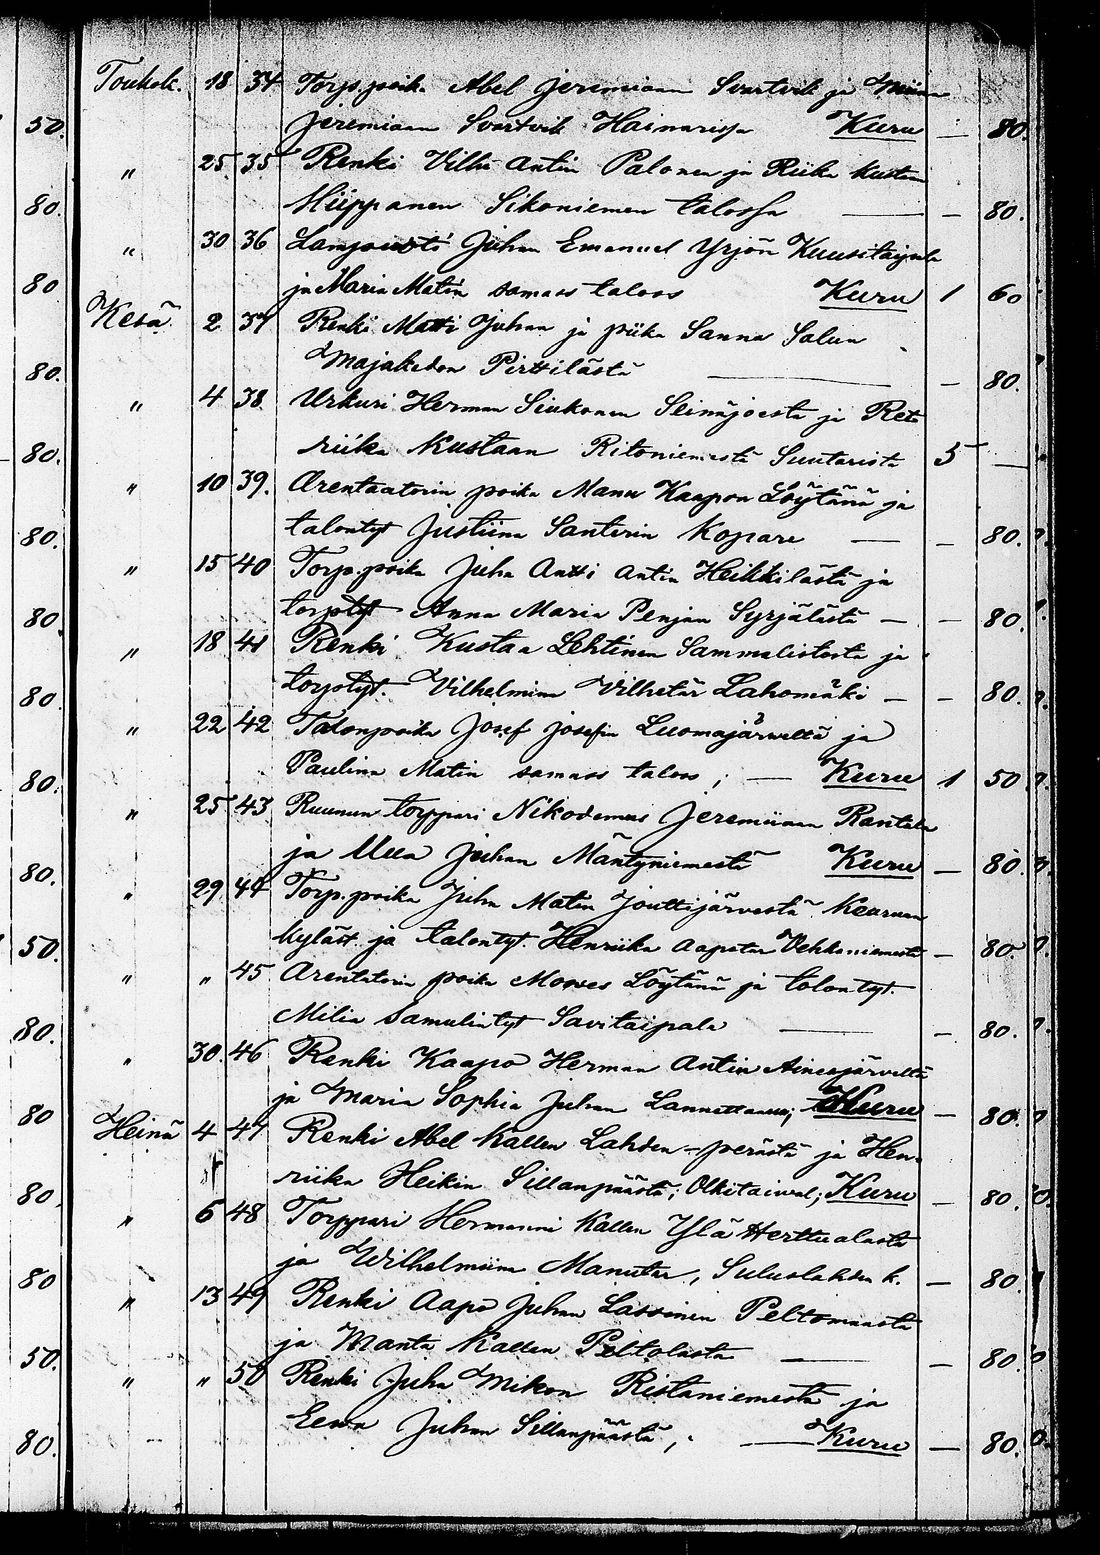 Toukok. 18 34 Torp.poika Abel Jeremiaan Svartvik ja Miina
50. Jeremiaan Svartvik Hainarissa Kuru — 80.
" 25 35 Renki Ville Antin Palonen ja Riika Kustaan
80. Hiippanen Sikoniemen talossa — — 80.
" 30 36 Juhan Emanuel Yrjön Kuusitaipale
80 ja Maria Matin samass taloss Kuru 1 60
Kesä 2 37 Renki Matti Juhan ja piika Sanna Salun
80. Majakedon Pirttilästä — — 80.
" 4 38 Urkuri Herman Siukonen Seinäjoesta ja Reta
80. riika Kustaan Ritoniemestä Suutarista 5 —
" 10 39. Arentaatorin poika Manu Kaapon Löytänä ja
80. talontyt Justiina Santerin Kopare — — 80.
" 15 40 Torp.poika Juha Antti Antin Heikkilästä ja
80. torptyt Anna Maria Penjan Syrjälästä — — 80.
" 18 41 Renki Kustaa Lehtinen Sammalistosta ja
80 torptyt. Vilhelmina Vilhetär Lahomäki — — 80.
" 22 42 Talonpoika Josef Josefin Luomajärveltä ja
80. Paulina Matin samass taloss; — Kuru 1 50
" 25 43 Ruunun torppari Nikodemus Jeremiinan Rantala
80. ja Ulla Juhan Mäntyniemestä Kuru — 80.
" 29 44 Torp.poika Juha Matin Jouttijärvestä Keurun
50. kyläst ja talontyt. Henriika Aapetar Vehkoniemestä — 80.
" " 45 Arentatorin poika Moses Löytänä ja talontyt.
80. Milia Samulintyt Savitaipale — — 80.
" 30. 46 Renki Kaapo Herman Antin Ainesjärveltä
80 ja Maria Sophia Juhan Kuru — 80.
Heinä 4 47 Renki Abel Kallen Lahden-perästä ja Hen-
80. riika Heikin Sillanpäästä; Olkitaival; Kuru — 80.
" 6 48 Torppari Hermanni Kallen Ylä Herttualasta
80 ja Wilhelmiina Manutar, Suluslahden k. — 80.
" 13 49 Renki Aapo Juhan Lassinen Peltomaasta
50. ja Manta Kallen Peltolasta — — 80.
" " 50 Renki Juha Mikon Ristaniemestä ja
80. Eewa Juhan Sillanpäästä; — Kuru — 80.